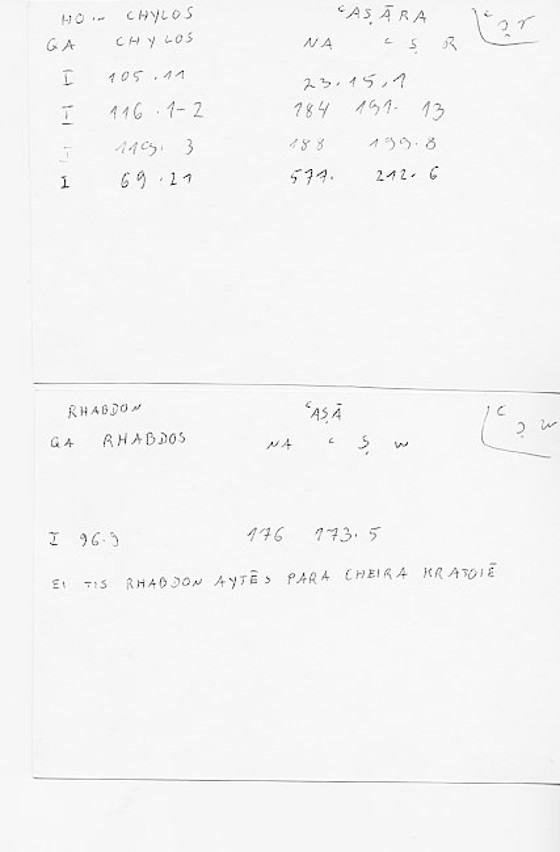 HO.. CHYLOS ʿAṢĀRA ʿ ṣ r
GA CHYLOS NA ʿ Ṣ R
I 105.11 23.15,1
I 116.1-2 184 191. 13
I 119. 3 188 199.8
I 69.21 571. 212.6
RHABDON ʿAṢĀ ʿ ṣ w
GA RHABDOS NA ʿ Ṣ W
I 96.9 176 173.5
EI TIS RHABDON AYTĒS PARA CHEIRA KRATOIĒ